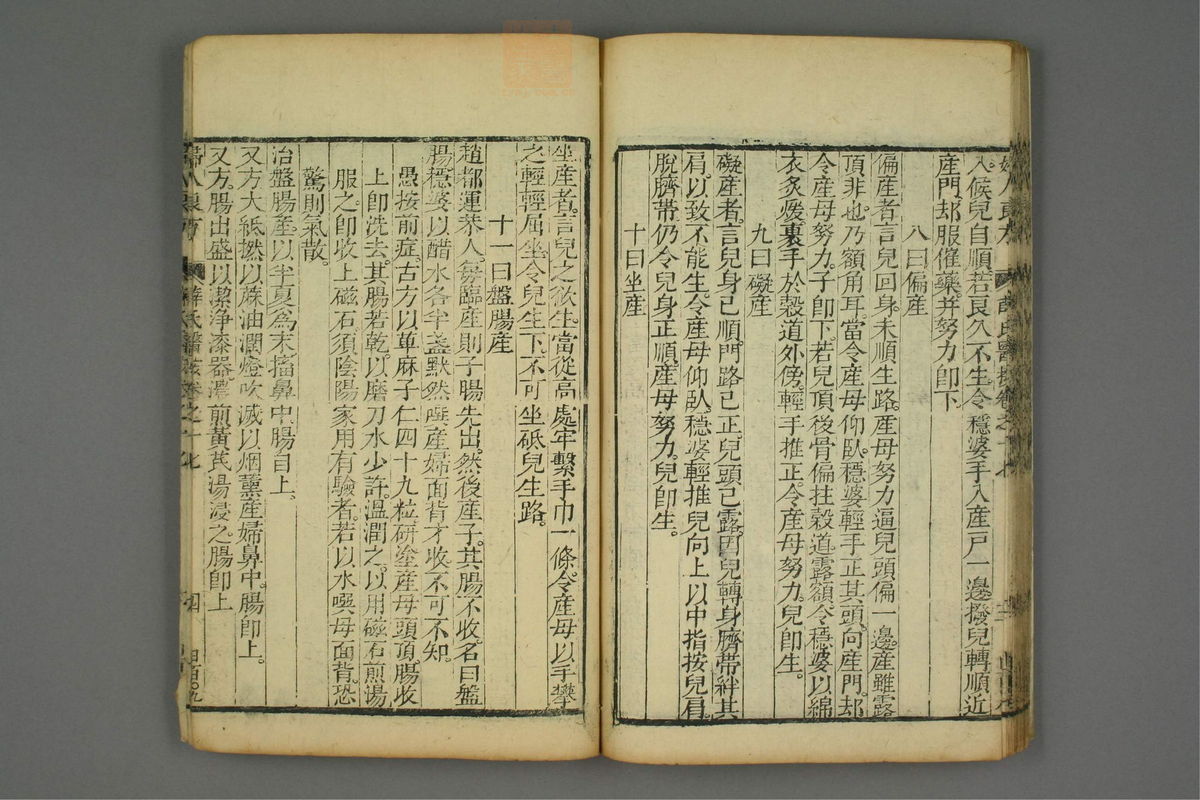 入候兒自順若良久不生令穩婆手入產戶一邊撥兒轉順近
產門却服催藥并努力即下
八曰偏產
偏產者言兒回身未順生路產母努力逼兒頭偏一邊產雖露
頂非也乃額角耳當令產母仰臥穩婆輕手正其頭向產門却
令產母努力子即下若兒頂後骨偏拄穀道露額令穩婆以綿
衣炙煖裏手於穀道外傍輕手推正令產母努力兒即生
九曰礙產
礙產者言兒身已順門路已正兒頭已露因兒轉身臍帶絆其
肩以致不能生令產母仰臥穩婆輕推兒向上以中指按兒肩
脫臍帶仍令兒身正順產母努力兒即生
十曰坐產
坐產者言兒之欲生當從高處牢繫手巾一條令產母以手攀
之輕輕屈坐令兒生下不可坐砥兒生路
十一曰盤腸產
趙都運恭人每臨產則子腸先出然後產子其腸不收名曰盤
腸穩婆以醋水各半盞默然噀產婦面背才收不可不知
愚按前症古方以萆麻子仁四十九粒研塗產母頭頂腸收
上卽洗去其腸若乾以磨刀水少許溫潤之以用磁石煎湯
服之卽收上磁石須陰陽家用有驗者若以水噀母面背恐
驚則氣散
治盤腸產以半夏為末搐鼻中腸自上
又方大紙撚以蔴油潤燈吹滅以烟薰產婦鼻中腸卽上
又方腸出盛以潔淨漆器濃煎黃芪湯浸之腸卽上